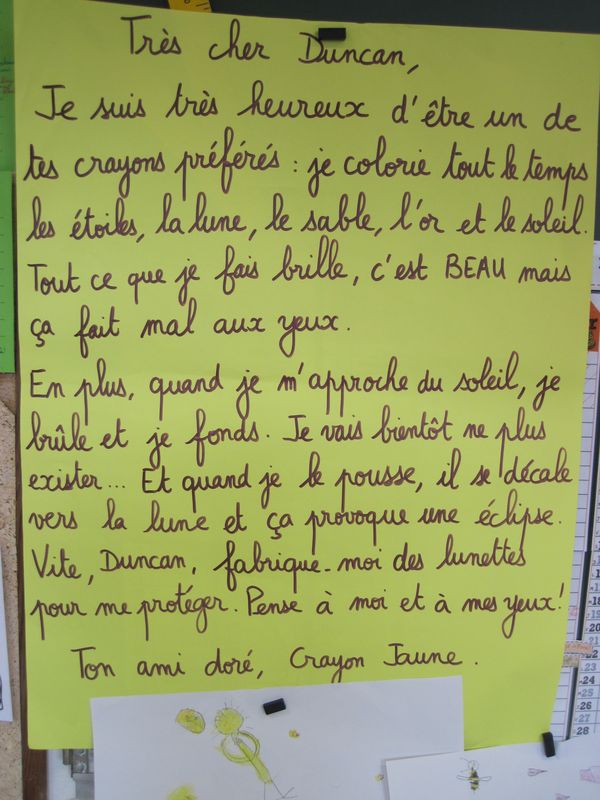 Très cher Duncan,
Je suis très heureux d'être un de
tes crayons préférés : je colorie tout le temps
les étoiles, la lune, le sable, l'or et le soleil.
Tout ce que je fais brille, c'est BEAU mais
ça fait mal aux yeux.
En plus, quand je m'approche du soleil, je
brûle et je fonds. Je vais bientôt ne plus
exister... Et quand je le pousse, il se décale
vers la lune et ça provoque une éclipse.
Vite, Duncan, fabrique-moi des lunettes
pour me protéger. Pense à moi et à mes yeux!
Ton ami doré, Crayon Jaune.